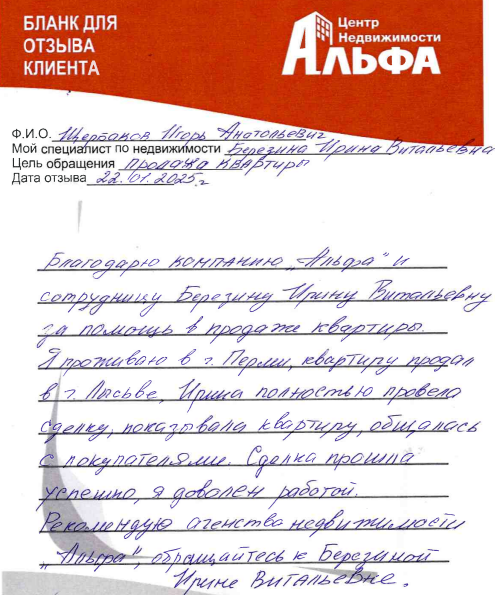 БЛАНК ДЛЯ
ОТЗЫВА
КЛИЕНТА
Центр
Недвижимости
АЛЬФА
Ф.И.О. Щербаков Игорь Анатольевич
Мой специалист по недвижимости Березина Ирина Витальевна
Цель обращения продажа квартиры
Дата отзыва 22.01.2025г
Благодарю компанию „Альфа" и
сотрудницу Березину Ирину Витальевну
за помощь в продаже квартиры.
Я проживаю в г. Перми, квартиру продал
в г. Лысьве, Ирина полностью провела
сделку, показывала квартиру, общалась
с покупателями. Сделка прошла
успешно, я доволен работой.
Рекомендую агенства недвижимости
„Альфа", обращайтесь к Березиной
Ирине Витальевне.